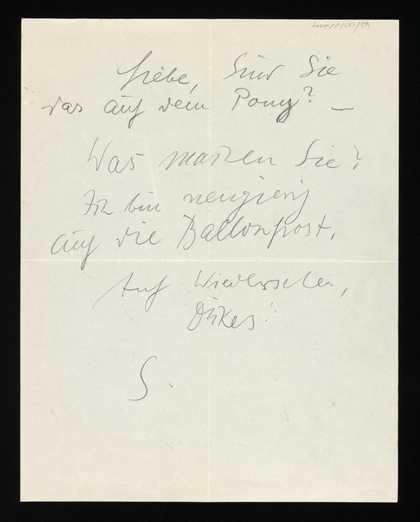 Liebe, Sind Sie
das auf dem Pony? —
Was machen Sie?
Ich bin neugierig
auf die Ballonpost.
Auf Wiedersehen,
S.